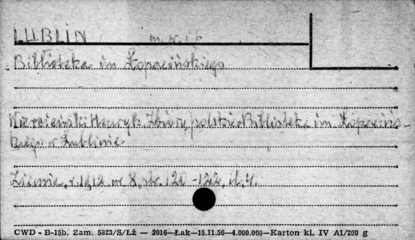 LUBLIN m. w. i p.
Biblioteka im. Łopacińskiego
Wierciński Henryk: Zbiory polskie. Biblioteka im. Łopaciń-
skiego w Lublinie
Ziemia, r. 1912 nr 8, str. 120-122, il. 4.
CWD - B-15b. Zam. 5823/S/Łż — 3016—Łak—15.11.56—4.000.000—Karton kl. IV A1/200 g